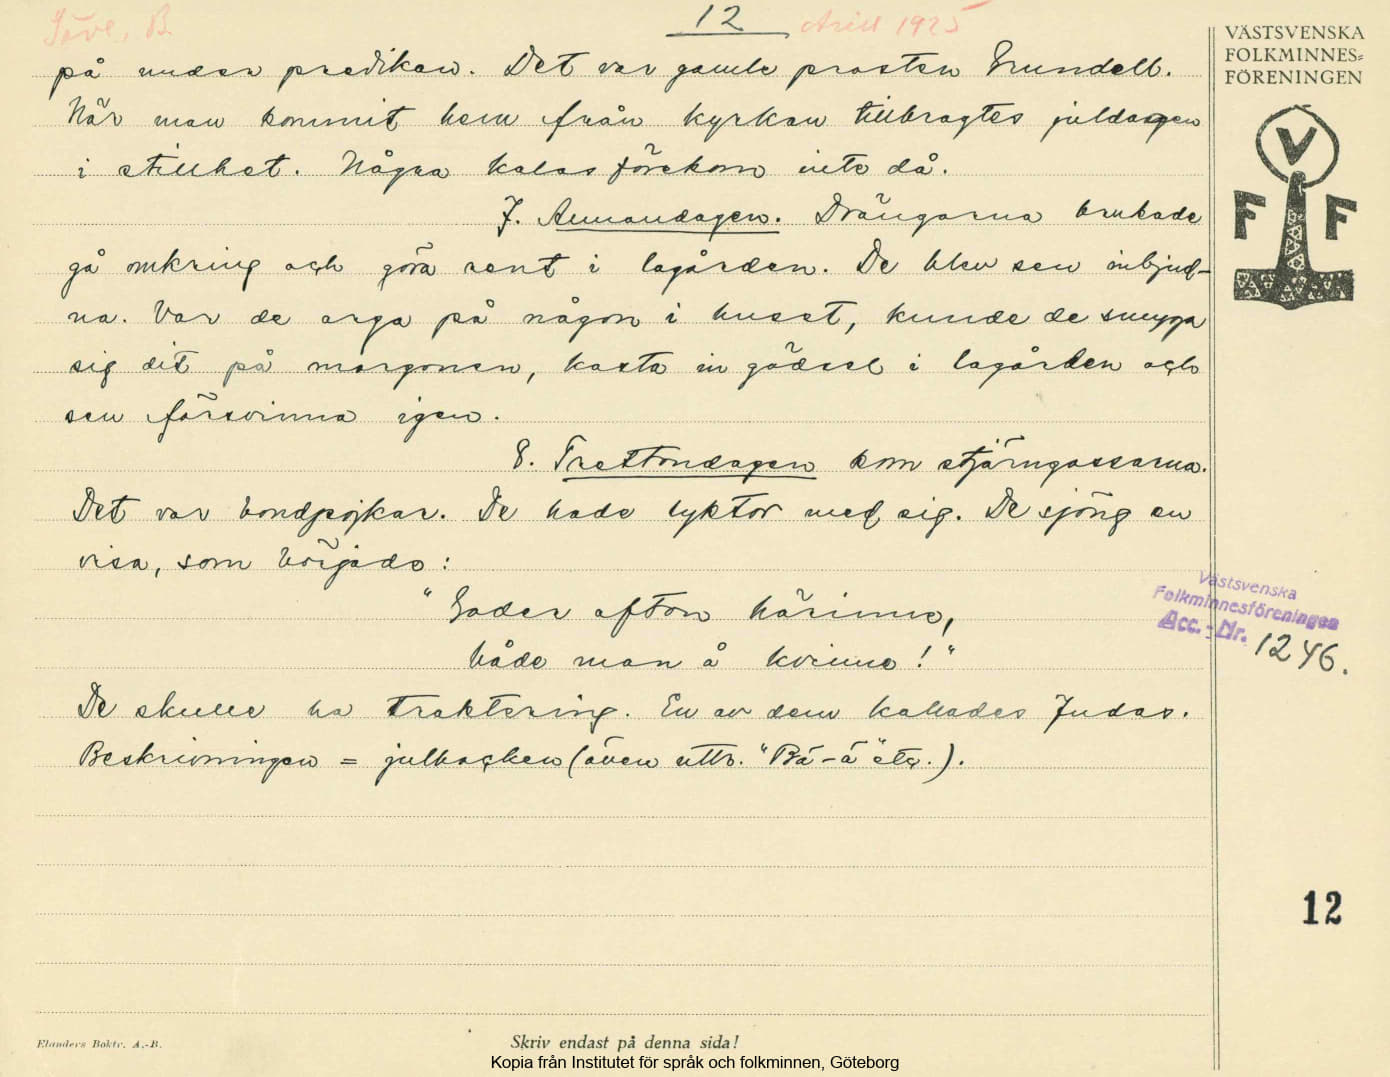 Söve, B.
12
April 1925
VÄSTSVENSKA
FOLKMINNES=
FÖRENINGEN
V
F F
på under predikan. Det var gamle prosten Grundell.
När man kommit hem från kyrkan tillbragtes juldagen
i stillhet. Några kalas förekom inte då.
7. Annandagen. Drängarna brukade
gå omkring och göra rent i lagården. De blev sen inbjud-
na. Var de arga på någon i huset, kunde de smyga
sig dit på morgonen, kasta in gödsel i lagården och
sen försvinna igen.
8. Trettondagen kom stjärngossarna.
Det var bondpojkar. De hade lyktor med sig. De sjöng en
visa, som började:
"Goder afton härinne,
både man å kvinne!"
De skulle ha traktering. En av dem kallades Judas.
Beskrivningen = julbocken (även uttr. "Bä-ä" etc.).
Västsvenska
Folkminnesföreningen
Acc.-Nr. 1246.
12
Elanders Boktr. A.-B.
Skriv endast på denna sida!
Kopia från Institutet för språk och folkminnen, Göteborg